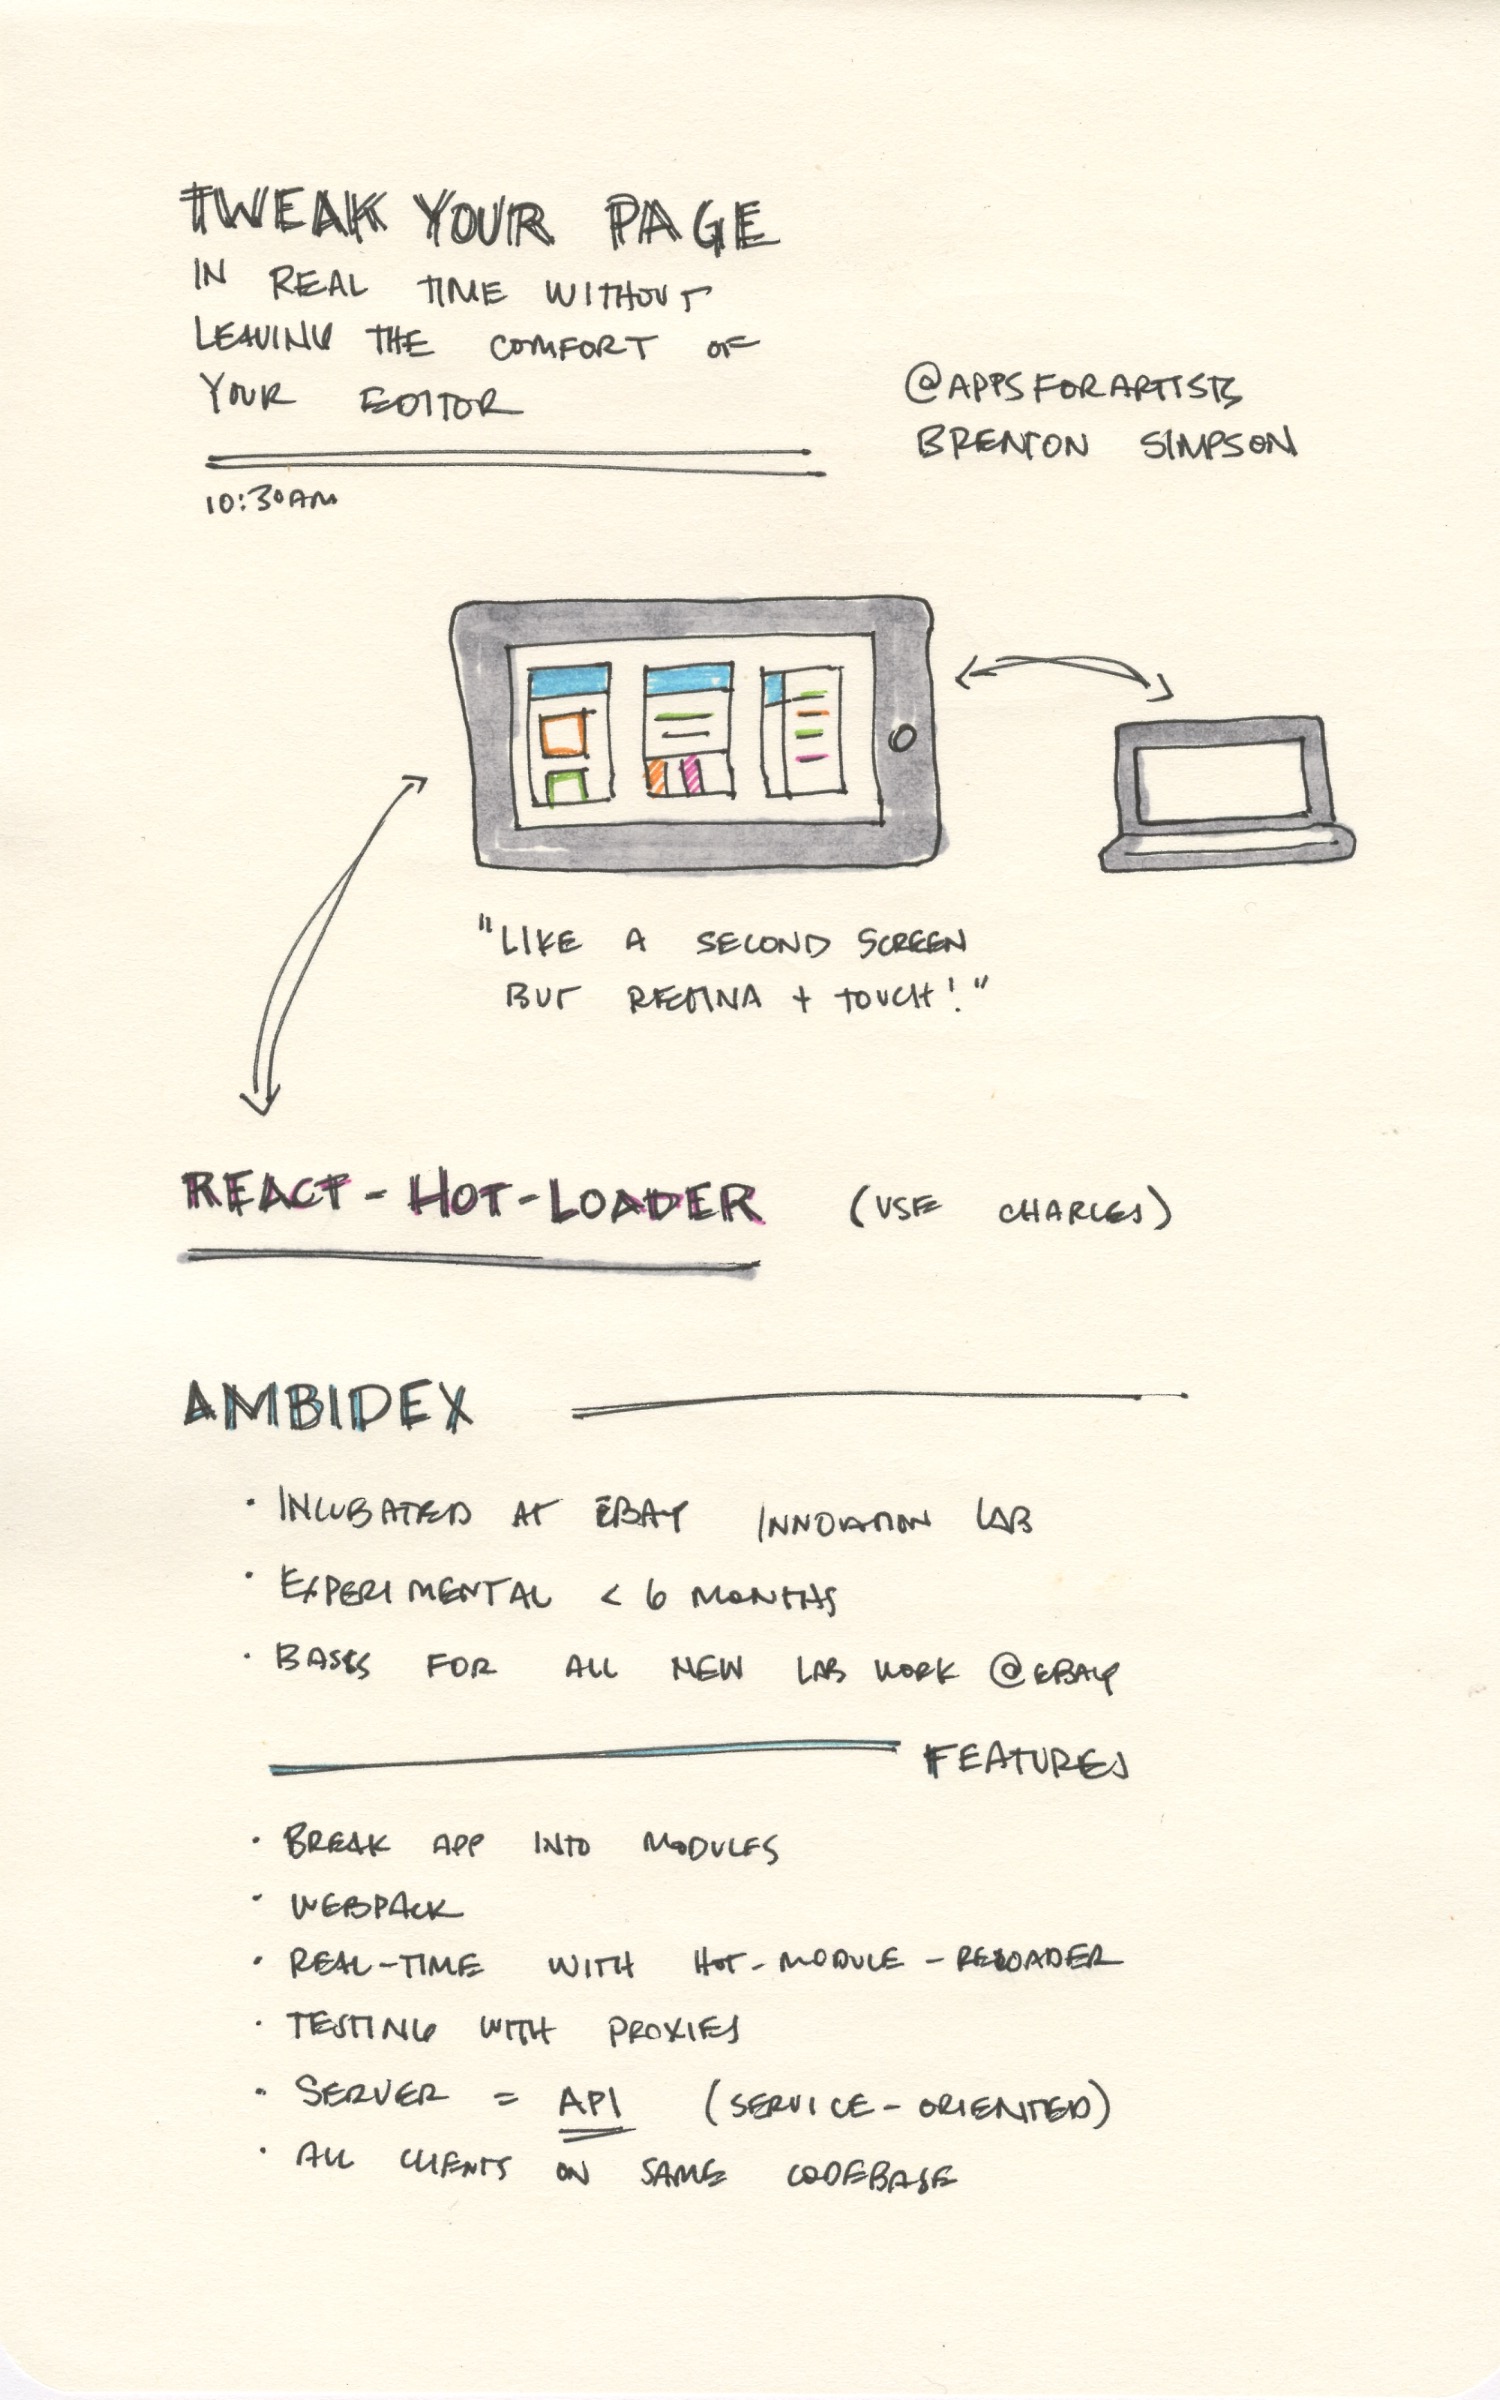 TWEAK YOUR PAGE
IN REAL TIME WITHOUT
LEAVING THE COMFORT OF
YOUR EDITOR
@APPSFORARTISTS
BRENTON SIMPSON
10:30AM
"LIKE A SECOND SCREEN
BUT RETINA + TOUCH!"
REACT-HOT-LOADER (USE CHARLES)
AMBIDEX
· INCUBATED AT EBAY INNOVATION LAB
· EXPERIMENTAL < 6 MONTHS
· BASIS FOR ALL NEW LAB WORK @EBAY
FEATURES
· BREAK APP INTO MODULES
· WEBPACK
· REAL-TIME WITH HOT-MODULE-RELOADER
· TESTING WITH PROXIES
· SERVER = API (SERVICE-ORIENTED)
· ALL CLIENTS ON SAME CODEBASE